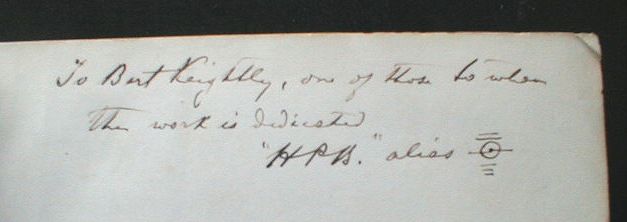 To Bert Keightly, one of those to whom
this work is dedicated
"HPB." alias